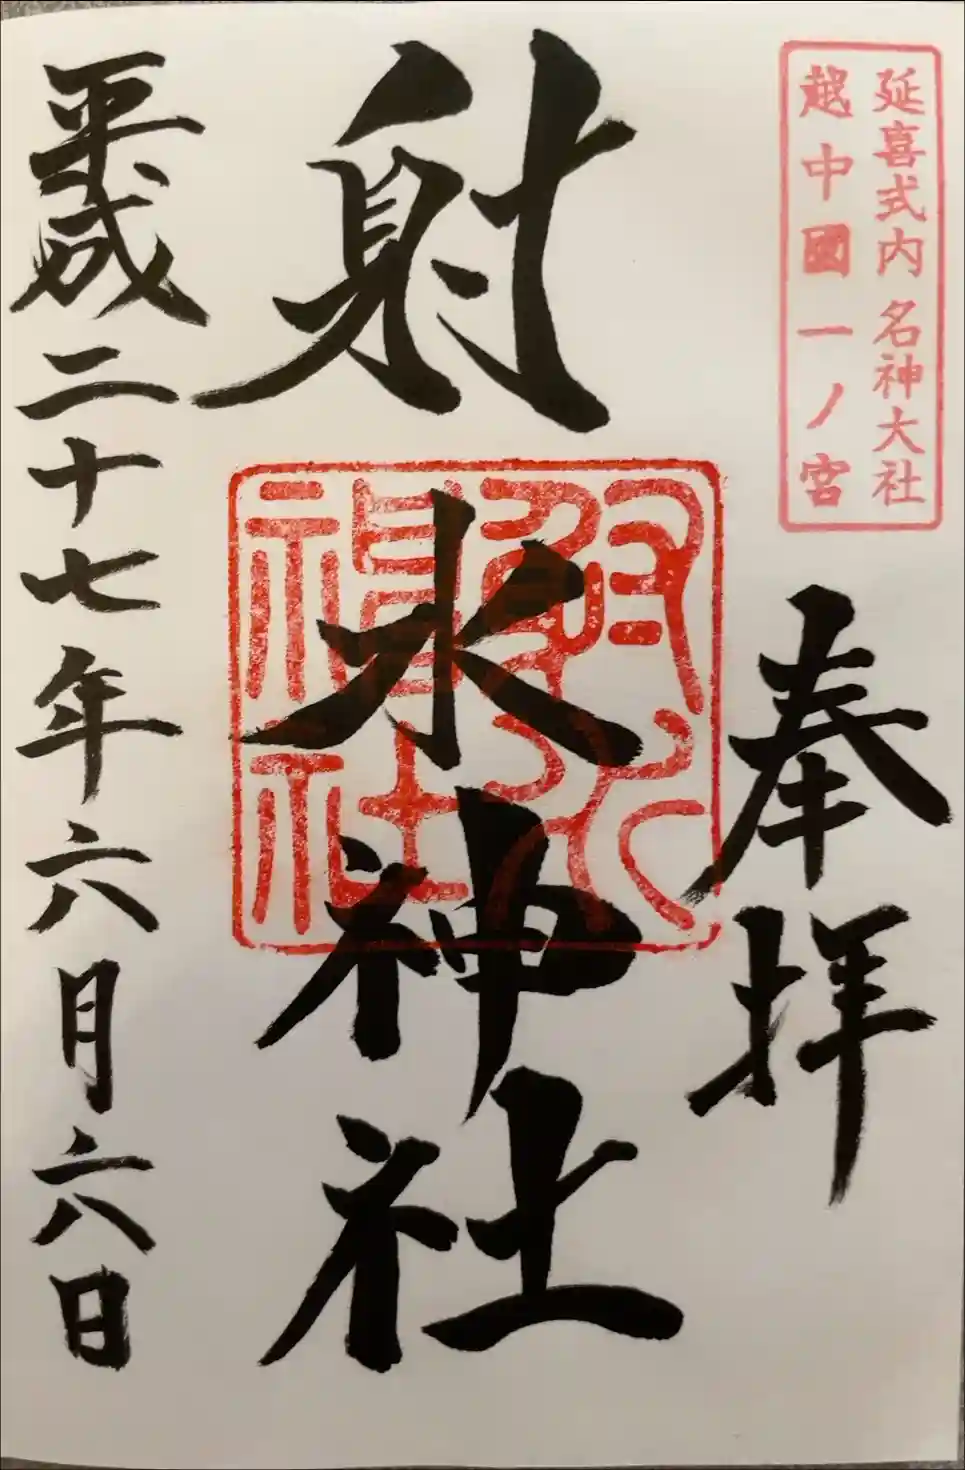 延喜式内 名神大社
越中國一ノ宮
奉拝
射水神社
射水神社
平成二十七年六月六日